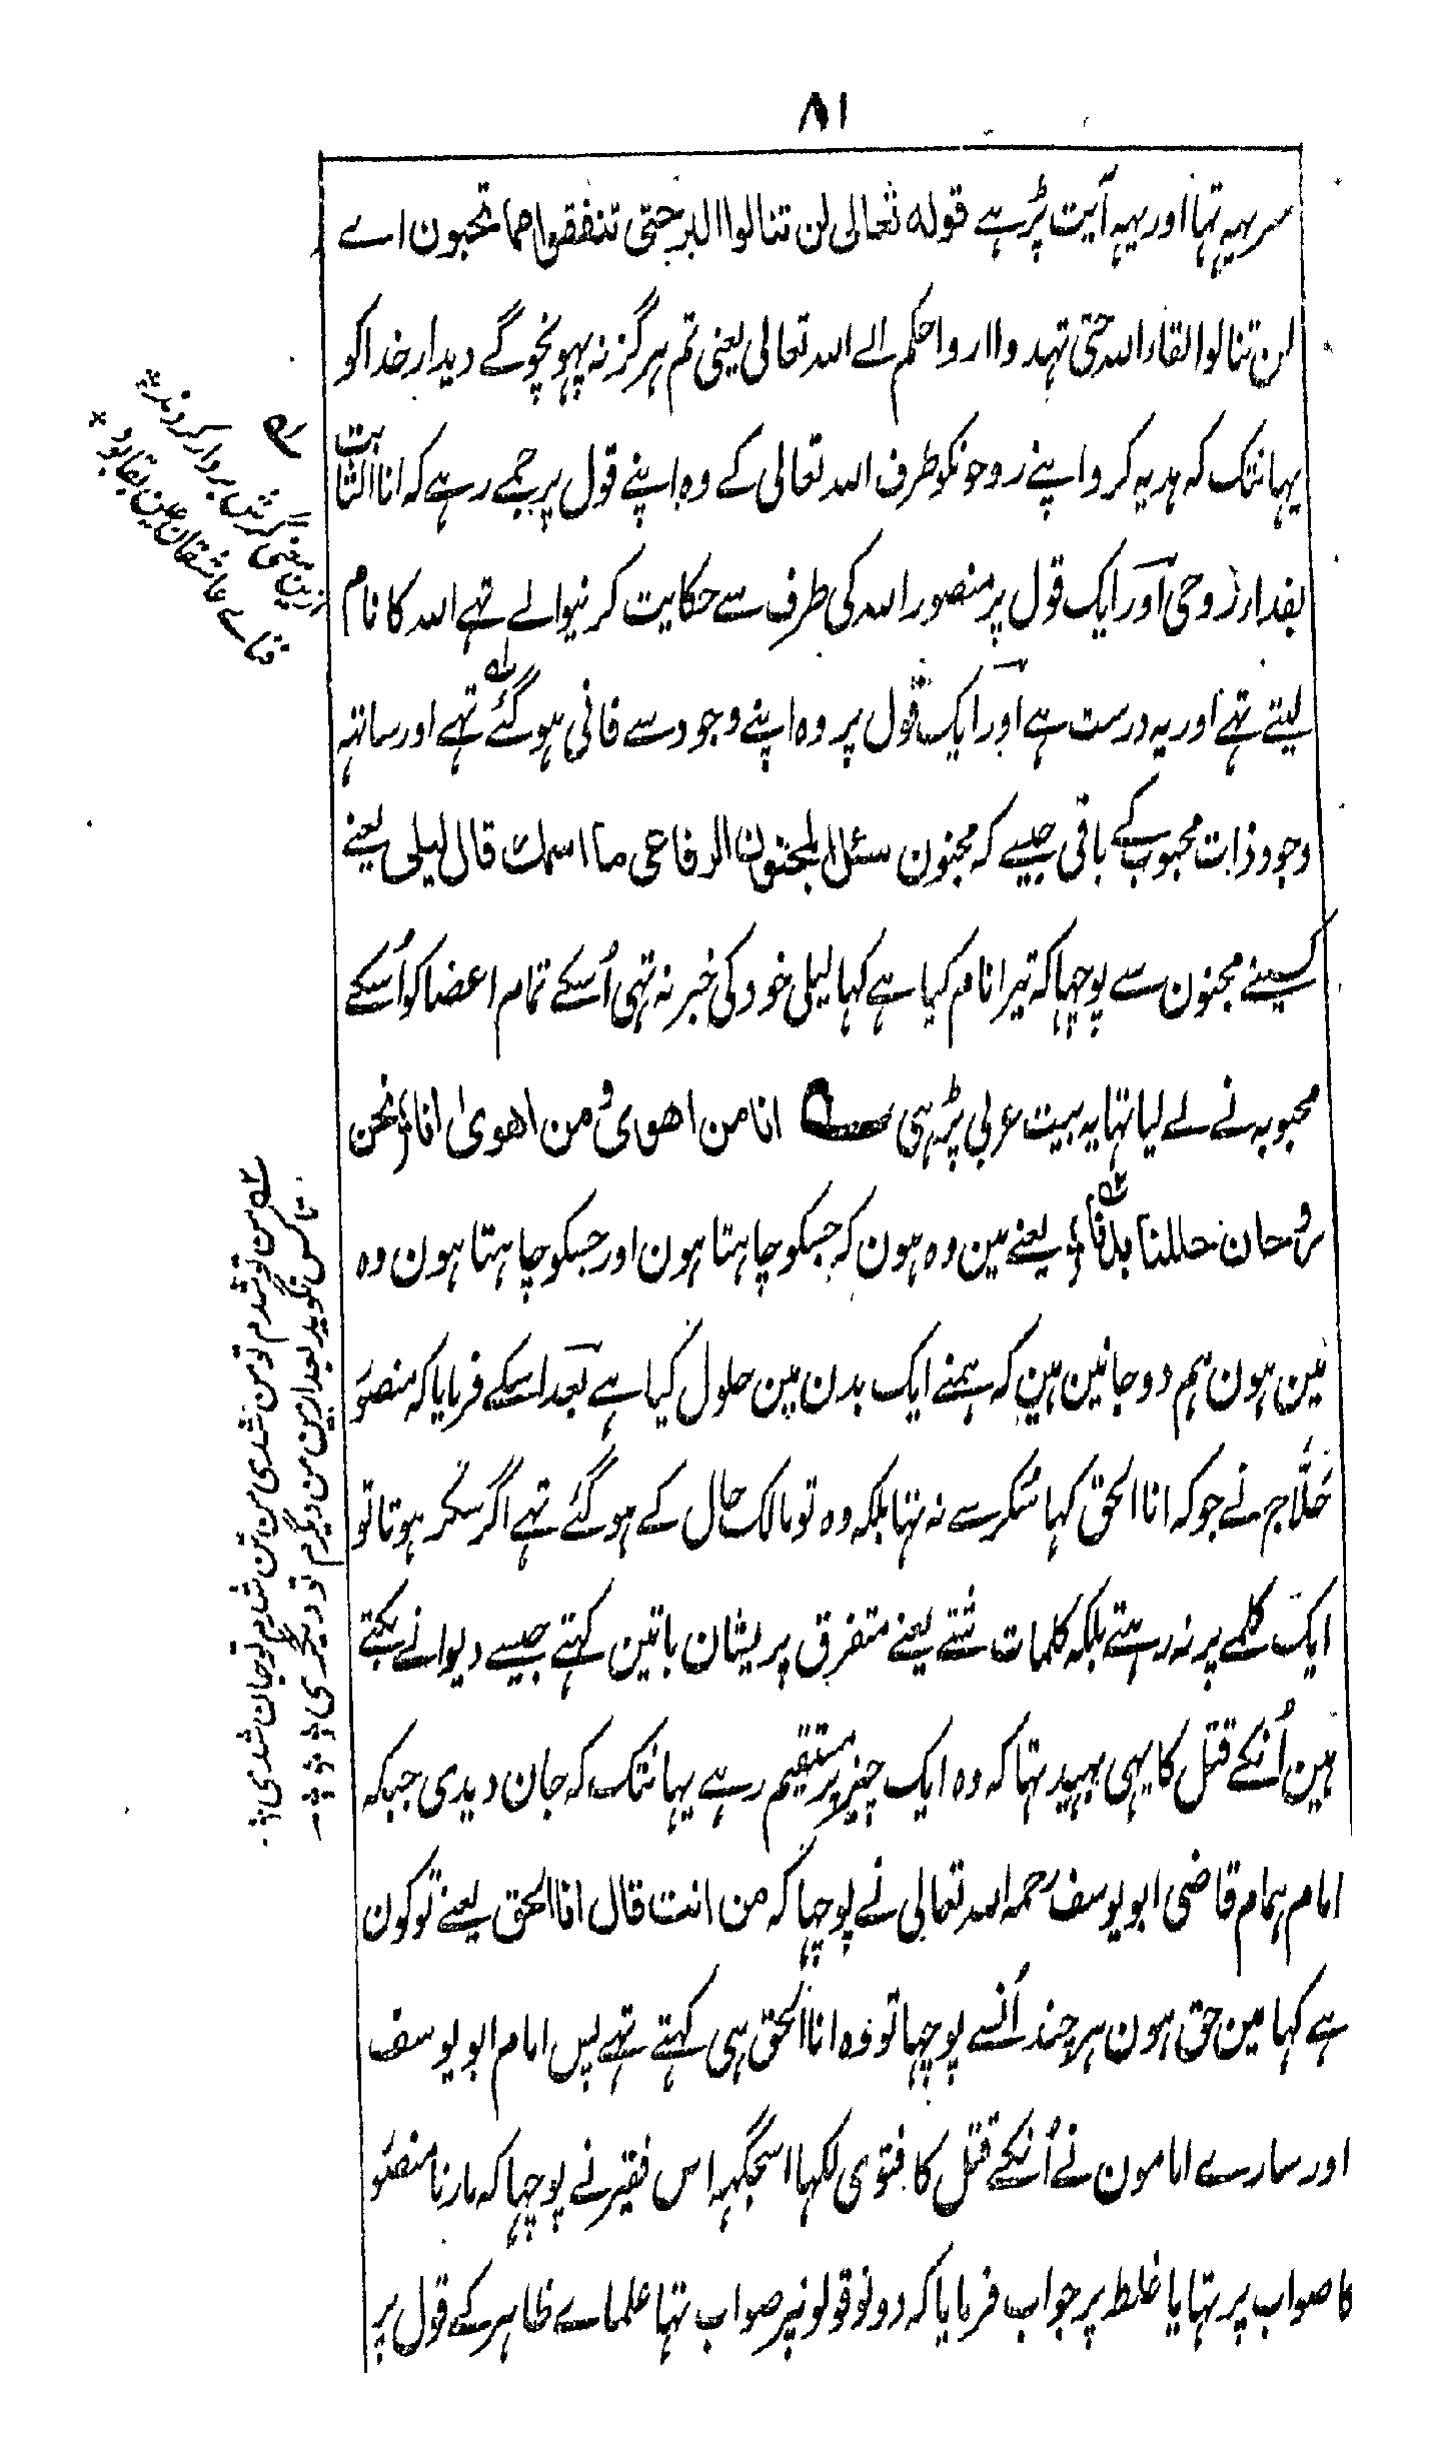 ۸۱
سر یہہ تہا اور یہہ آیت پڑہے قولہ تعالی لن تنالوا البر حتی تنفقوا مما تحبون اے
لن تنالوا لقاء اللہ حتی تہدوا ارواحکم الے اللہ تعالی یعنی تم ہرگز نہ پہونچوگے دیدار خدا کو
یہانتک کہ ہدیہ کرو اپنے روحونکو طرف اللہ تعالی کے وہ اپنے قول پر جمے رہے کہ انا الثابت
بفداء روحی اور ایک قول پر منصور اللہ کی طرف سے حکایت کرنیوالے تہے اللہ کا نام
لیتے تہے اور یہ درست ہے اور ایک قول پر وہ اپنے وجود سے فانی ہوگئے تہے اور ساتہہ
وجود ذات محبوب کے باقی جیسے کہ مجنون سئل المجنون الرفاعی ما اسمک قال لیلی یعنے
کسینے مجنون سے پوچہا کہ تیرا نام کیا ہے کہا لیلی خود کی خبر نہ تہی اُسکے تمام اعضا کو اُسکے
محبوبہ نے لے لیا تہا یہ بیت عربی پڑہی ؎ انا من اھوی و من اھوی انا ؛ نحن
روحان حللنا بدنا ؛ یعنے مین وہ ہون کہ جسکو چاہتا ہون اور جسکو چاہتا ہون وہ
مین ہون ہم دو جانین ہین کہ ہمنے ایک بدن مین حلول کیا ہے بعد اسکے فرمایا کہ منصور
حَلّاج نے جو کہ انا الحق کہا سُکر سے نہ تہا بلکہ وہ تو مالک حال کے ہوگئے تہے اگر سُکر ہوتا تو
ایک کلمے پر نہ رہتے بلکہ کلمات شتے یعنے متفرق پریشان باتین کہتے جیسے دیوانے بکتے
ہین اُنکے قتل کا یہی بہید تہا کہ وہ ایک چیز پر مستقیم رہے یہانتک کہ جان دیدی جبکہ
امام ہمام قاضی ابو یوسف رحمہ اللہ تعالی نے پوچہا کہ من انت قال انا الحق یعنے تو کون
ہے کہا مین حق ہون ہر چند اُنسے پوچہا تو وہ انا الحق ہی کہتے تہے پس امام ابو یوسف
اور سارے امامون نے اُنکے قتل کا فتوی لکہا اسجگہہ اس فقیر نے پوچہا کہ مارنا منصور
کا صواب پر تہا یا غلط پر جواب فرمایا کہ دونو قولونپر صواب تہا علماے ظاہر کے قول پر
زین معنی گرش بردار کردند
فناے عاشقان عین بقا بود
من تو شدم تو من شدی من تن شدم تو جان شدی
تا کس نگوید بعد ازین من دیگرم تو دیگری